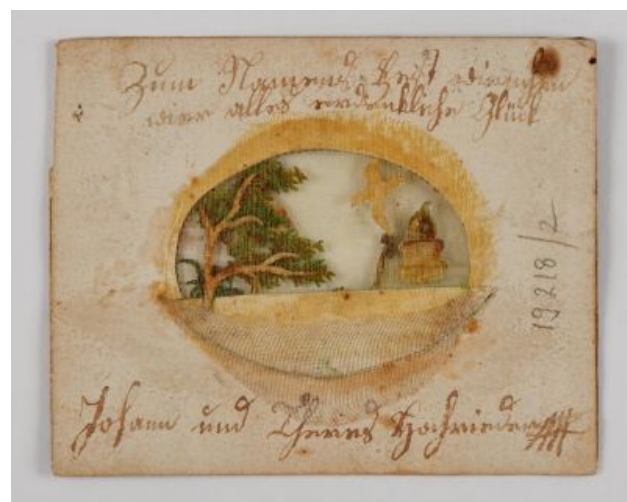 Zum Namens Fest winschen
wier alles erdenkliche Glück
19218/2
Johann und Theres Hochrieder